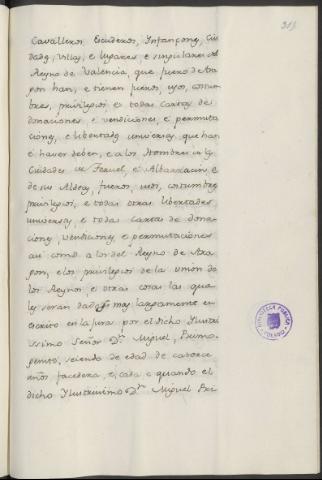 313
Cavalleros, Escuderos, Ynfançones, Ciu
dades, Villas, e lugares, e singulares del
Reyno de Valencia, que fuero de Ara
gon han, e tienen fueros, usos, costum
bres, privilegios, e todas cartas de
donaciones, e vendiciones, e permuta
ciones, e libertades universas, que han
e haver deben, e a los Hombres
Ciudades de Teruel, e Albarracin, e
de sus Aldeas, fueros, usos, costumbres
privilegios, e todas otras libertades
universas, e todas cartas de dona
ciones, vendiciones, e permutaciones
asi como a los del Reyno de Ara
gon, e los privilegios de la union de
los Reynos, e otras cosas las que
les seran dadas mas largamente en
escrito en la jura por el dicho Ylustri
ssimo Señor Dn. Miguel, Primo
genito, seiendo de edad de catorce
años facedera, e cada e quando el
dicho Ylustrissimo Dn. Miguel Pri
BIBLIOTECA PUBLICA
TOLEDO